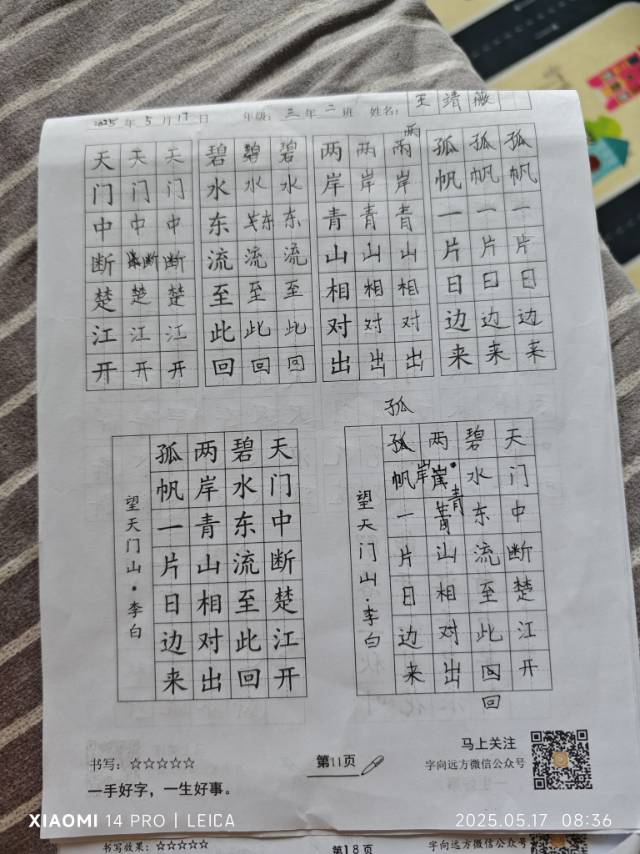 2025年5月17日 年级：三年二班 姓名：王靖薇
天天天 碧碧碧 两两两两 孤孤孤
门门门 水水水 岸岸岸 帆帆帆
中中中 东东东 青青青 一一一
断断断 流流流 山山山 片片片
楚楚楚 至至至 相相相 日日日
江江江 此此此 对对对 边边边
开开开 回回回 出出出 来来来
望天门山·李白
天门中断楚江开
碧水东流至此回
两岸青山相对出
孤帆一片日边来
孤
望天门山·李白
天门中断楚江开
碧水东流至此回
回
两岸岸青青山相对出
孤帆一片日边来
书写：☆☆☆☆☆
一手好字，一生好事。
第11页
马上关注
字向远方微信公众号
XIAOMI 14 PRO | LEICA
2025.05.17 08:36
书写效果：☆☆☆☆☆
第18页
字向远方微信公众号